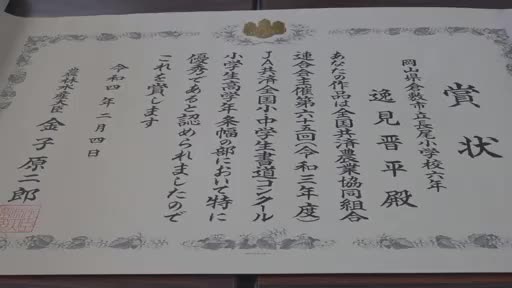 賞状
岡山県倉敷市立長尾小学校六年
逸見晋平殿
あなたの作品は全国共済農業協同組合
連合会主催第六十五回(令和三年度)
JA共済全国小・中学生書道コンクール
小学生高学年条幅の部において特に
優秀であると認められましたので
これを賞します
令和四年二月四日
農林水産大臣 金子原二郎